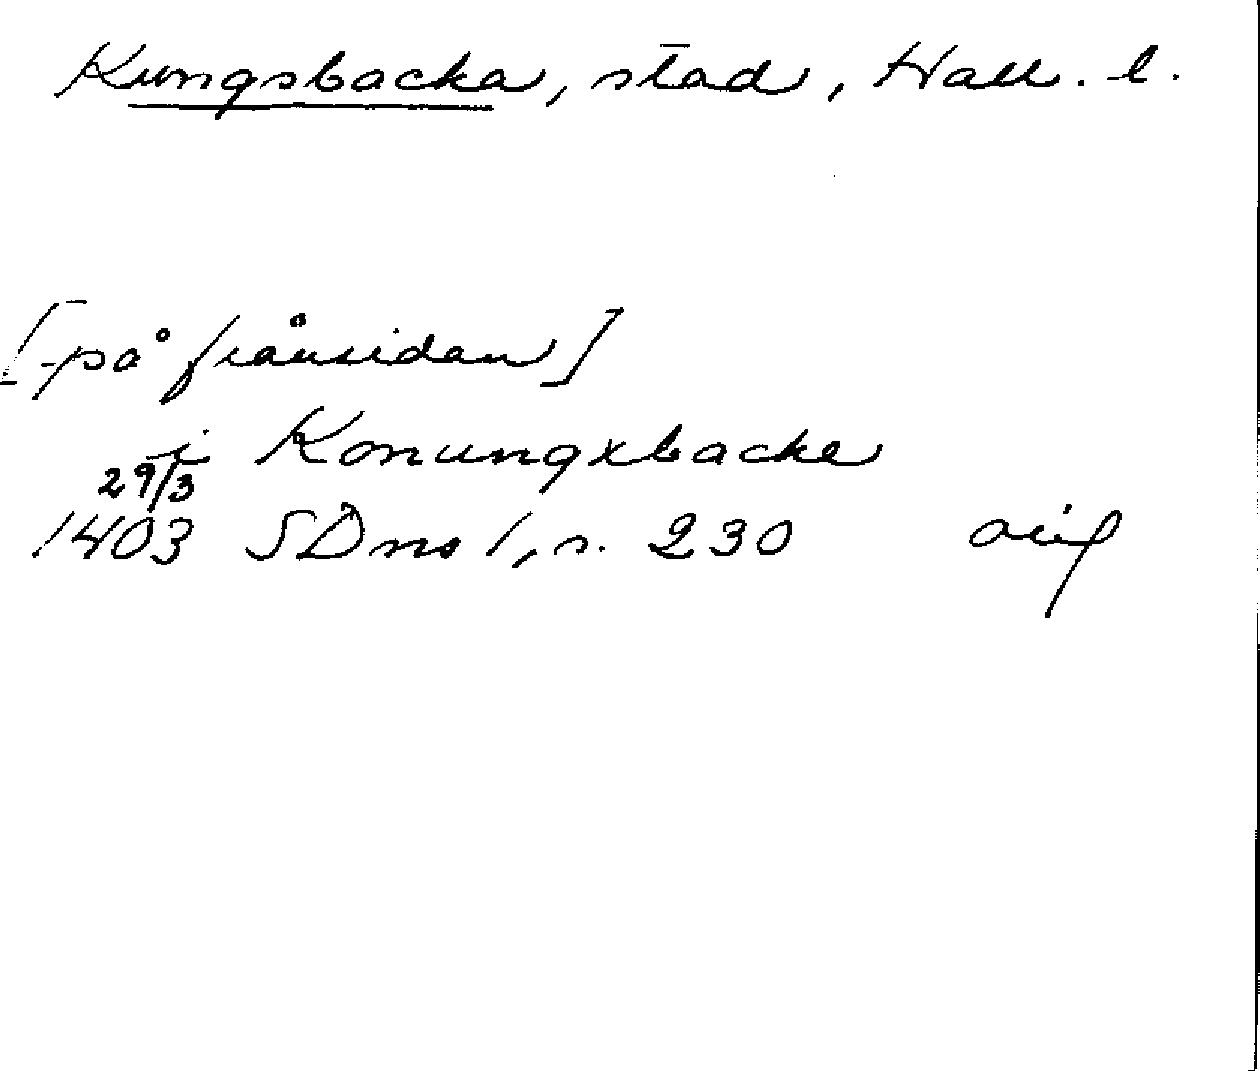 Kungsbacka, stad, Hall. l.
[på frånsidan]
i Konungxbacke
29/3
1403 SDns 1, s. 230 orig